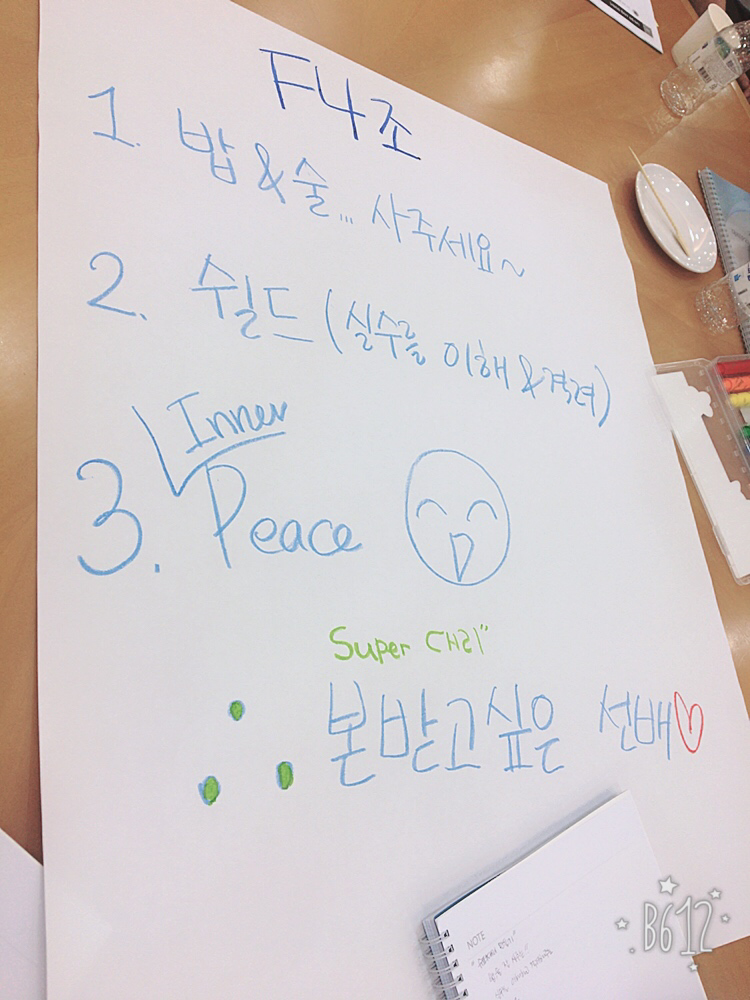 F4조
1. 밥 & 술... 사주세요~
2. 쉴드 (실수를 이해 & 격려)
Inner
3. Peace
Super 대리"
∴ 본받고싶은 선배♡
NOTE
B612